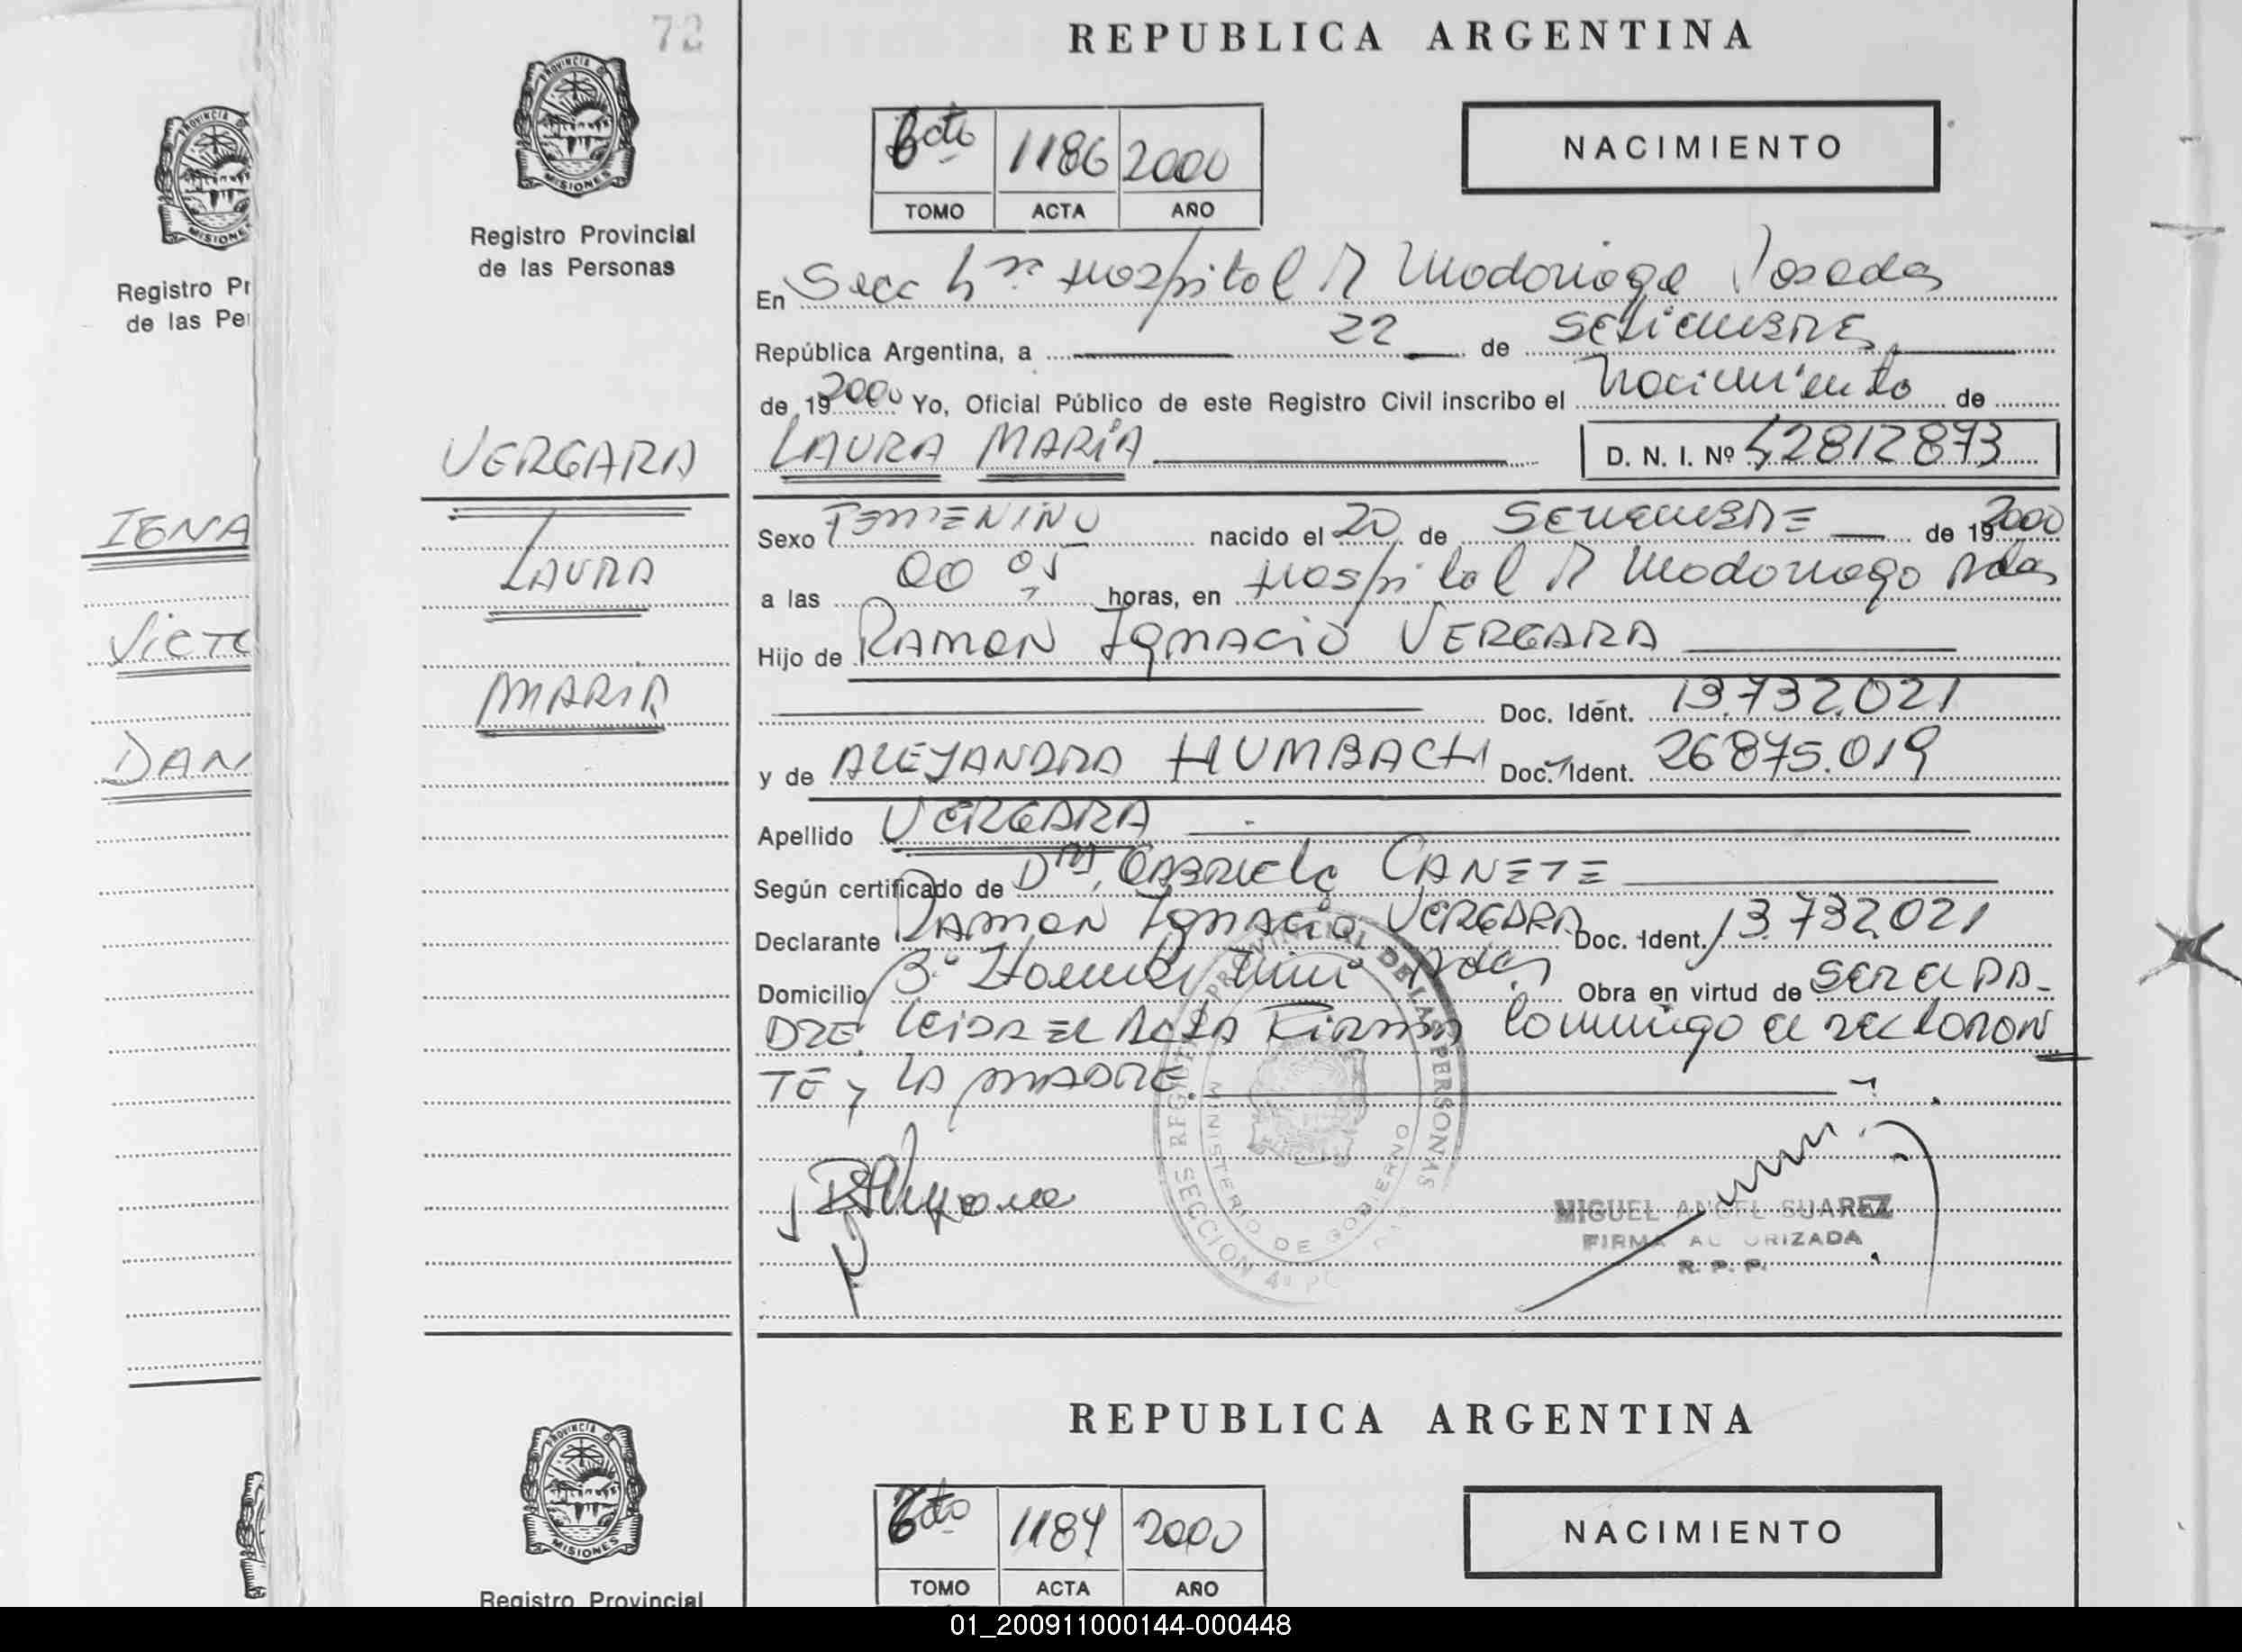 72
REPUBLICA ARGENTINA
PROVINCIA D
MISIONES
Registro Provincial
de las Personas
6cto 1186 2000
TOMO ACTA AÑO
NACIMIENTO
En Secc 4ta Hospital R Madariaga Posadas
República Argentina, a 22 de SETIEMBRE
de 192000 Yo, Oficial Público de este Registro Civil inscribo el Nacimiento de
VERGARA
LAURA MARIA D. N. I. Nº 42812873
Sexo FEMENINO nacido el 20 de SETIEMBRE de 192000
LAURA
a las 00 05 horas, en Hospital R Madariaga Pdas
Hijo de RAMON Ignacio VERGARA
MARIA
Doc. Idént. 13.732.021
y de ALEJANDRA HUMBACH Doc. Ident. 26875.019
Apellido VERGARA
Según certificado de Dra. GABRIELA CANETE
Declarante RAMON Ignacio VERGARA Doc. Ident. 13.732021
Domicilio Bº Pdas Obra en virtud de SER EL PA-
DRE. LEIDA EL ACTA FIRMAN Conmigo el declaran
TE y LA MADRE
REGISTRO PROVINCIAL DE LAS PERSONAS
MINISTERIO DE GOBIERNO
SECCION 4ª
MIGUEL ANGEL SUAREZ
FIRMA AUTORIZADA
R. P. P.
REPUBLICA ARGENTINA
PROVINCIA D
MISIONES
Registro Provincial
6cto 1187 2000
TOMO ACTA AÑO
NACIMIENTO
PROVINCIA
MISIONE
Registro Pr
de las Per
IGNA
VICTO
DAN
01_200911000144-000448